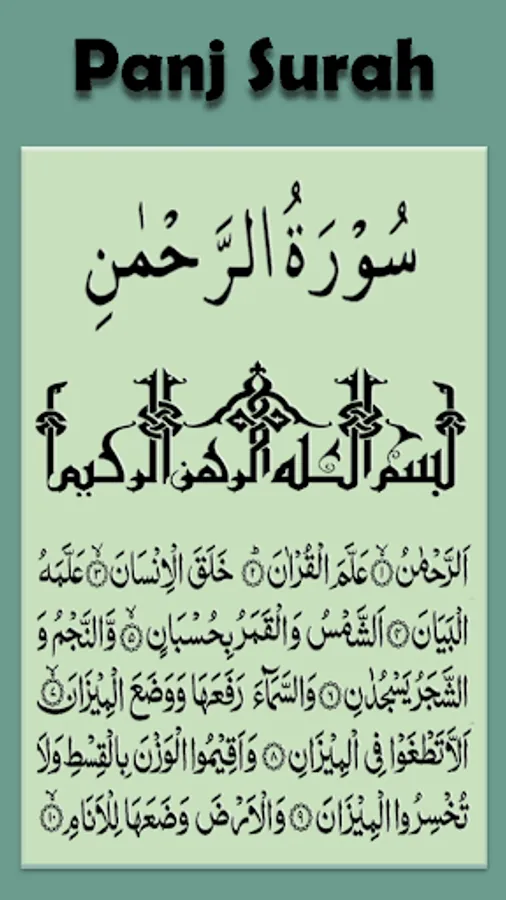 Panj Surah
سُوْرَةُ الرَّحْمٰنِ
بسم الله الرحمن الرحيم
اَلرَّحْمٰنُ ۙ﴿۱﴾ عَلَّمَ الْقُرْاٰنَ ؕ﴿۲﴾ خَلَقَ الْاِنْسَانَ ۙ﴿۳﴾ عَلَّمَهُ
الْبَيَانَ ﴿۴﴾ اَلشَّمْسُ وَالْقَمَرُ بِحُسْبَانٍ ۙ﴿۵﴾ وَّالنَّجْمُ وَ
الشَّجَرُ يَسْجُدٰنِ ﴿۶﴾ وَالسَّمَآءَ رَفَعَهَا وَوَضَعَ الْمِيْزَانَ ۙ﴿۷﴾
اَلَّا تَطْغَوْا فِى الْمِيْزَانِ ﴿۸﴾ وَاَقِيْمُوا الْوَزْنَ بِالْقِسْطِ وَلَا
تُخْسِرُوا الْمِيْزَانَ ﴿۹﴾ وَالْاَرْضَ وَضَعَهَا لِلْاَنَامِ ۙ﴿۱۰﴾